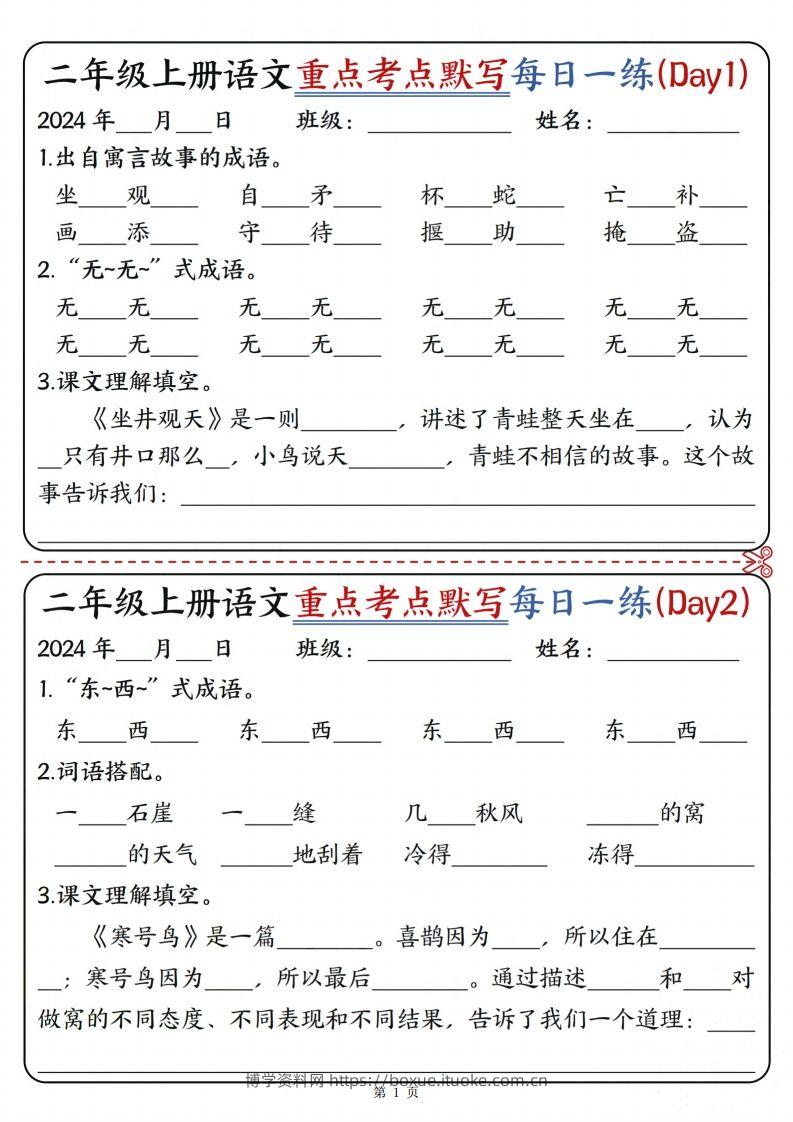 二年级上册语文重点考点默写每日一练(Day1)
2024 年___月___日 班级：____________ 姓名：___________
1.出自寓言故事的成语。
坐____观____ 自____矛____ 杯____蛇____ 亡____补____
画____添____ 守____待____ 揠____助____ 掩____盗____
2.“无~无~”式成语。
无____无____ 无____无____ 无____无____ 无____无____
无____无____ 无____无____ 无____无____ 无____无____
3.课文理解填空。
《坐井观天》是一则________，讲述了青蛙整天坐在____，认为
__只有井口那么__，小鸟说天________，青蛙不相信的故事。这个故
事告诉我们：________________________________________________
____________________________________________________________
二年级上册语文重点考点默写每日一练(Day2)
2024 年___月___日 班级：____________ 姓名：___________
1.“东~西~”式成语。
东____西____ 东____西____ 东____西____ 东____西____
2.词语搭配。
一____石崖 一____缝 几____秋风 ______的窝
______的天气 ______地刮着 冷得________ 冻得__________
3.课文理解填空。
《寒号鸟》是一篇________。喜鹊因为____，所以住在________
__；寒号鸟因为____，所以最后________。通过描述______和____对
做窝的不同态度、不同表现和不同结果，告诉了我们一个道理：____
____________________________________________________________
博学资料网 https://boxue.ituoke.com.cn
第 1 页